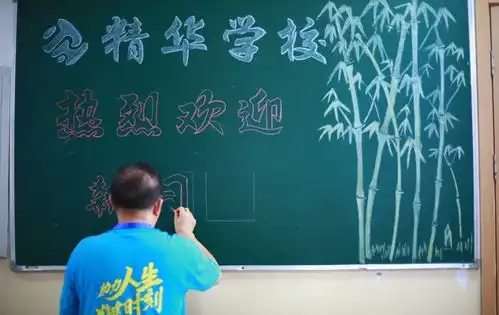 精华学校
热烈欢迎
新同
助力人生
时刻